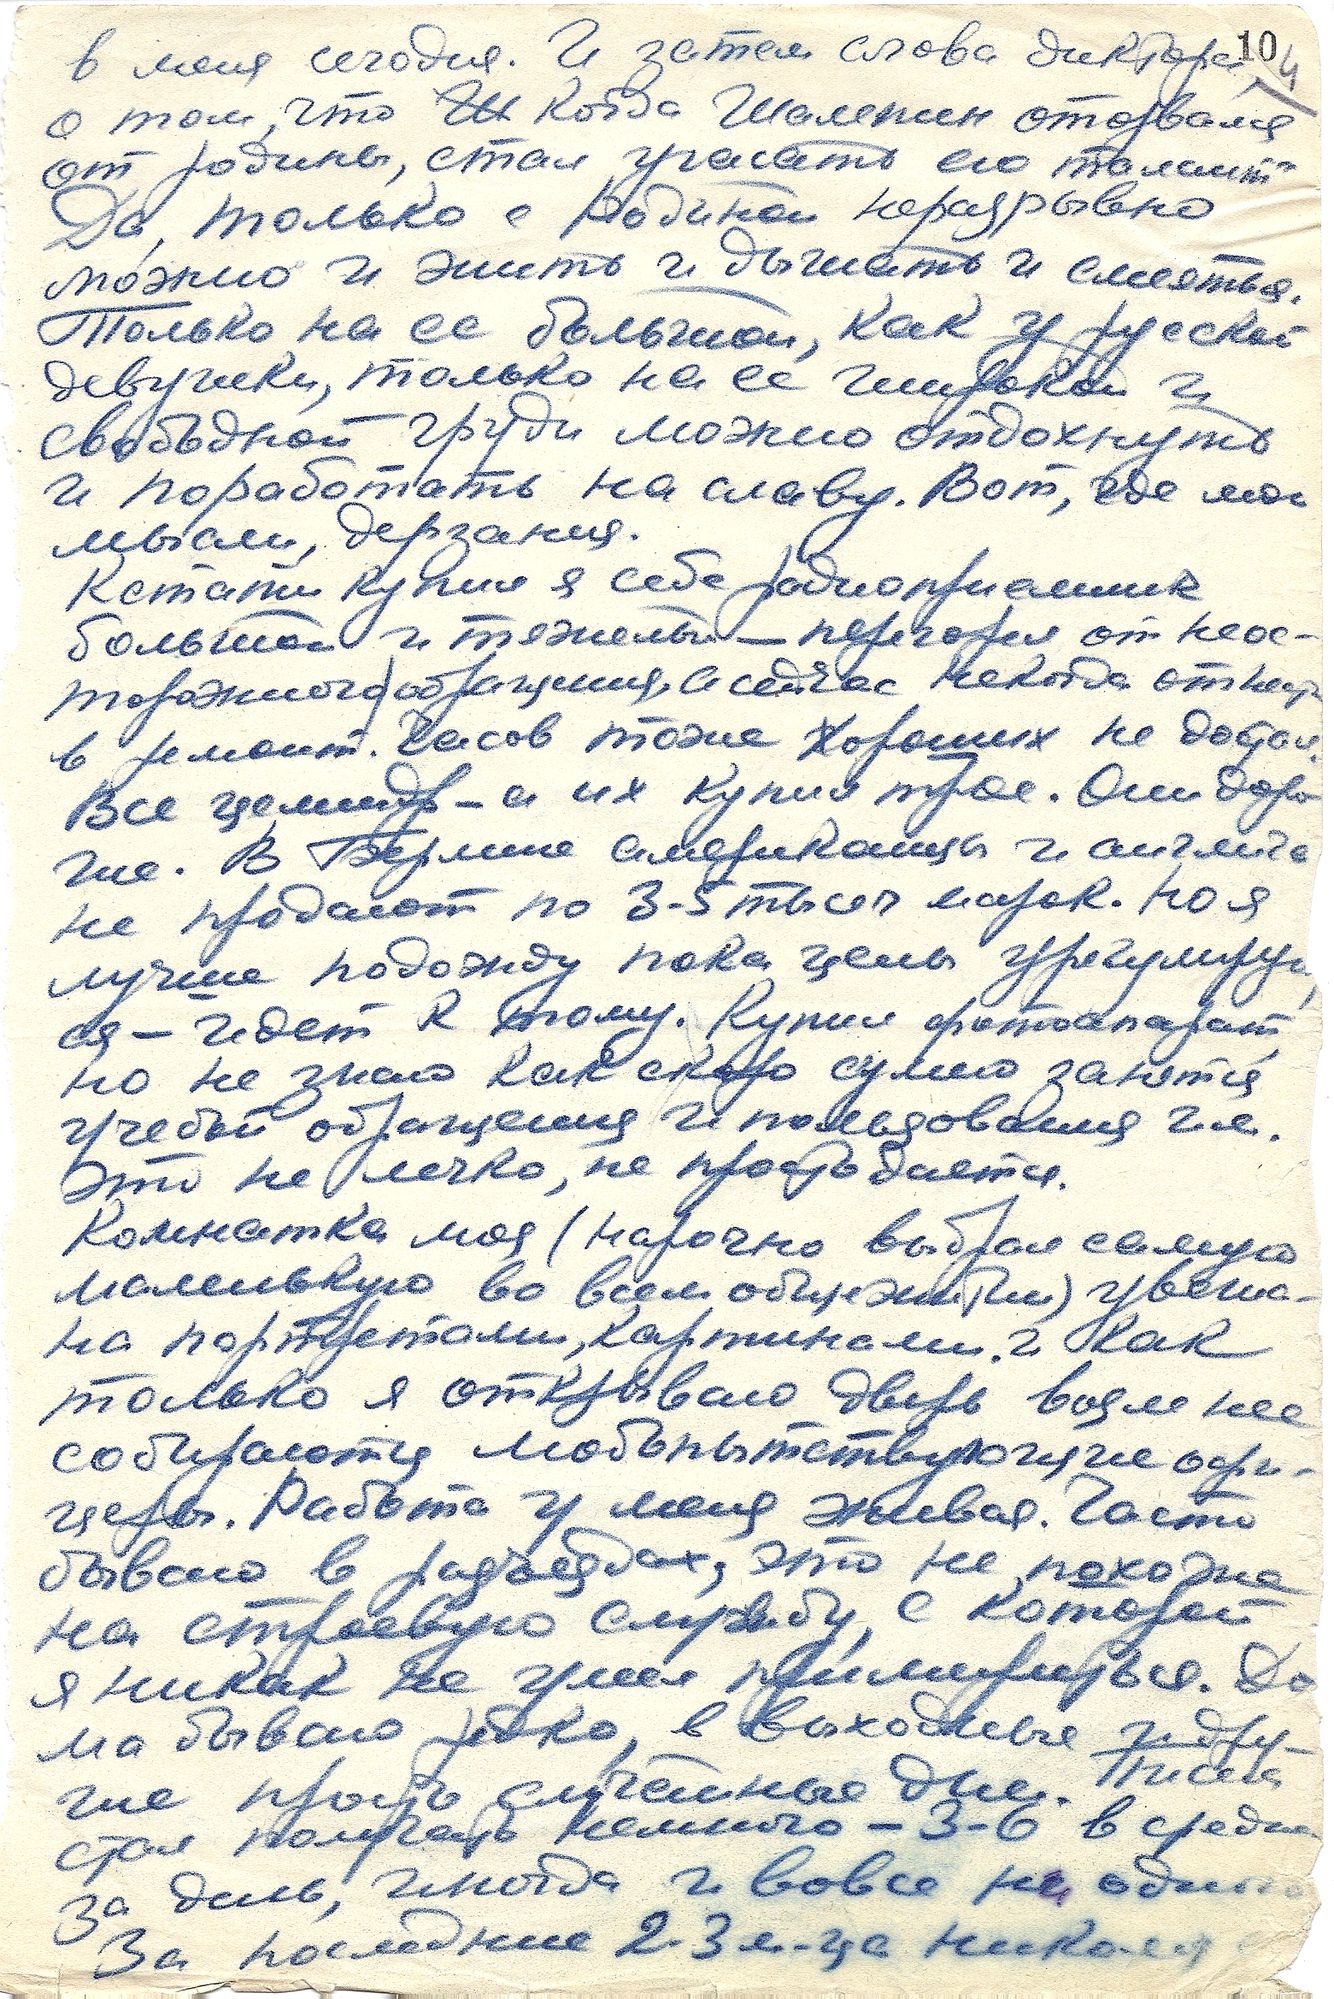 10
4
в меня сегодня. И затем слова диктора
о том, что когда Шаляпин оторвался
от родины, стал угасать его талант
Да, только с Родиной неразрывно
можно и жить и дышать и смеяться.
Только на ее большой, как у русской
девушки, только на ее широкой и
свободной груди можно отдохнуть
и поработать на славу. Вот, где мои
мысли, дерзания.
Кстати купил я себе радиоприемник
большой и тяжелый – перегорел от неос-
торожного обращения, а сейчас некогда отнести
в ремонт. Часов тоже хороших не достал.
Все цилиндр – а их купил трое. Они доро
гие. В Берлине американцы и англича
не продают по 3-5 тысяч марок. Но я
лучше подожду пока цены урегулируют
ся – идет к тому. Купил фотоапарат,
но не знаю как скоро сумею заняться
учебой обращения и пользования им.
Это не легко, не просто дается.
Комнатка моя (нарочно выбрал самую
маленькую во всем общежитии) увеша-
на портретами, картинами. и как
только я открываю дверь возле нее
собираются любопытствующие офи-
церы. Работа у меня живая. Часто
бываю в разъездах, это не похоже
на строевую службу, с которой
я никак не умел примириться. До
ма бываю редко, в выходные и дру-
гие просто случайные дни. Писем
стал получать немного – 3-6 в среднем
за день, иногда и вовсе ни одного
За последние 2-3 м-ца никому